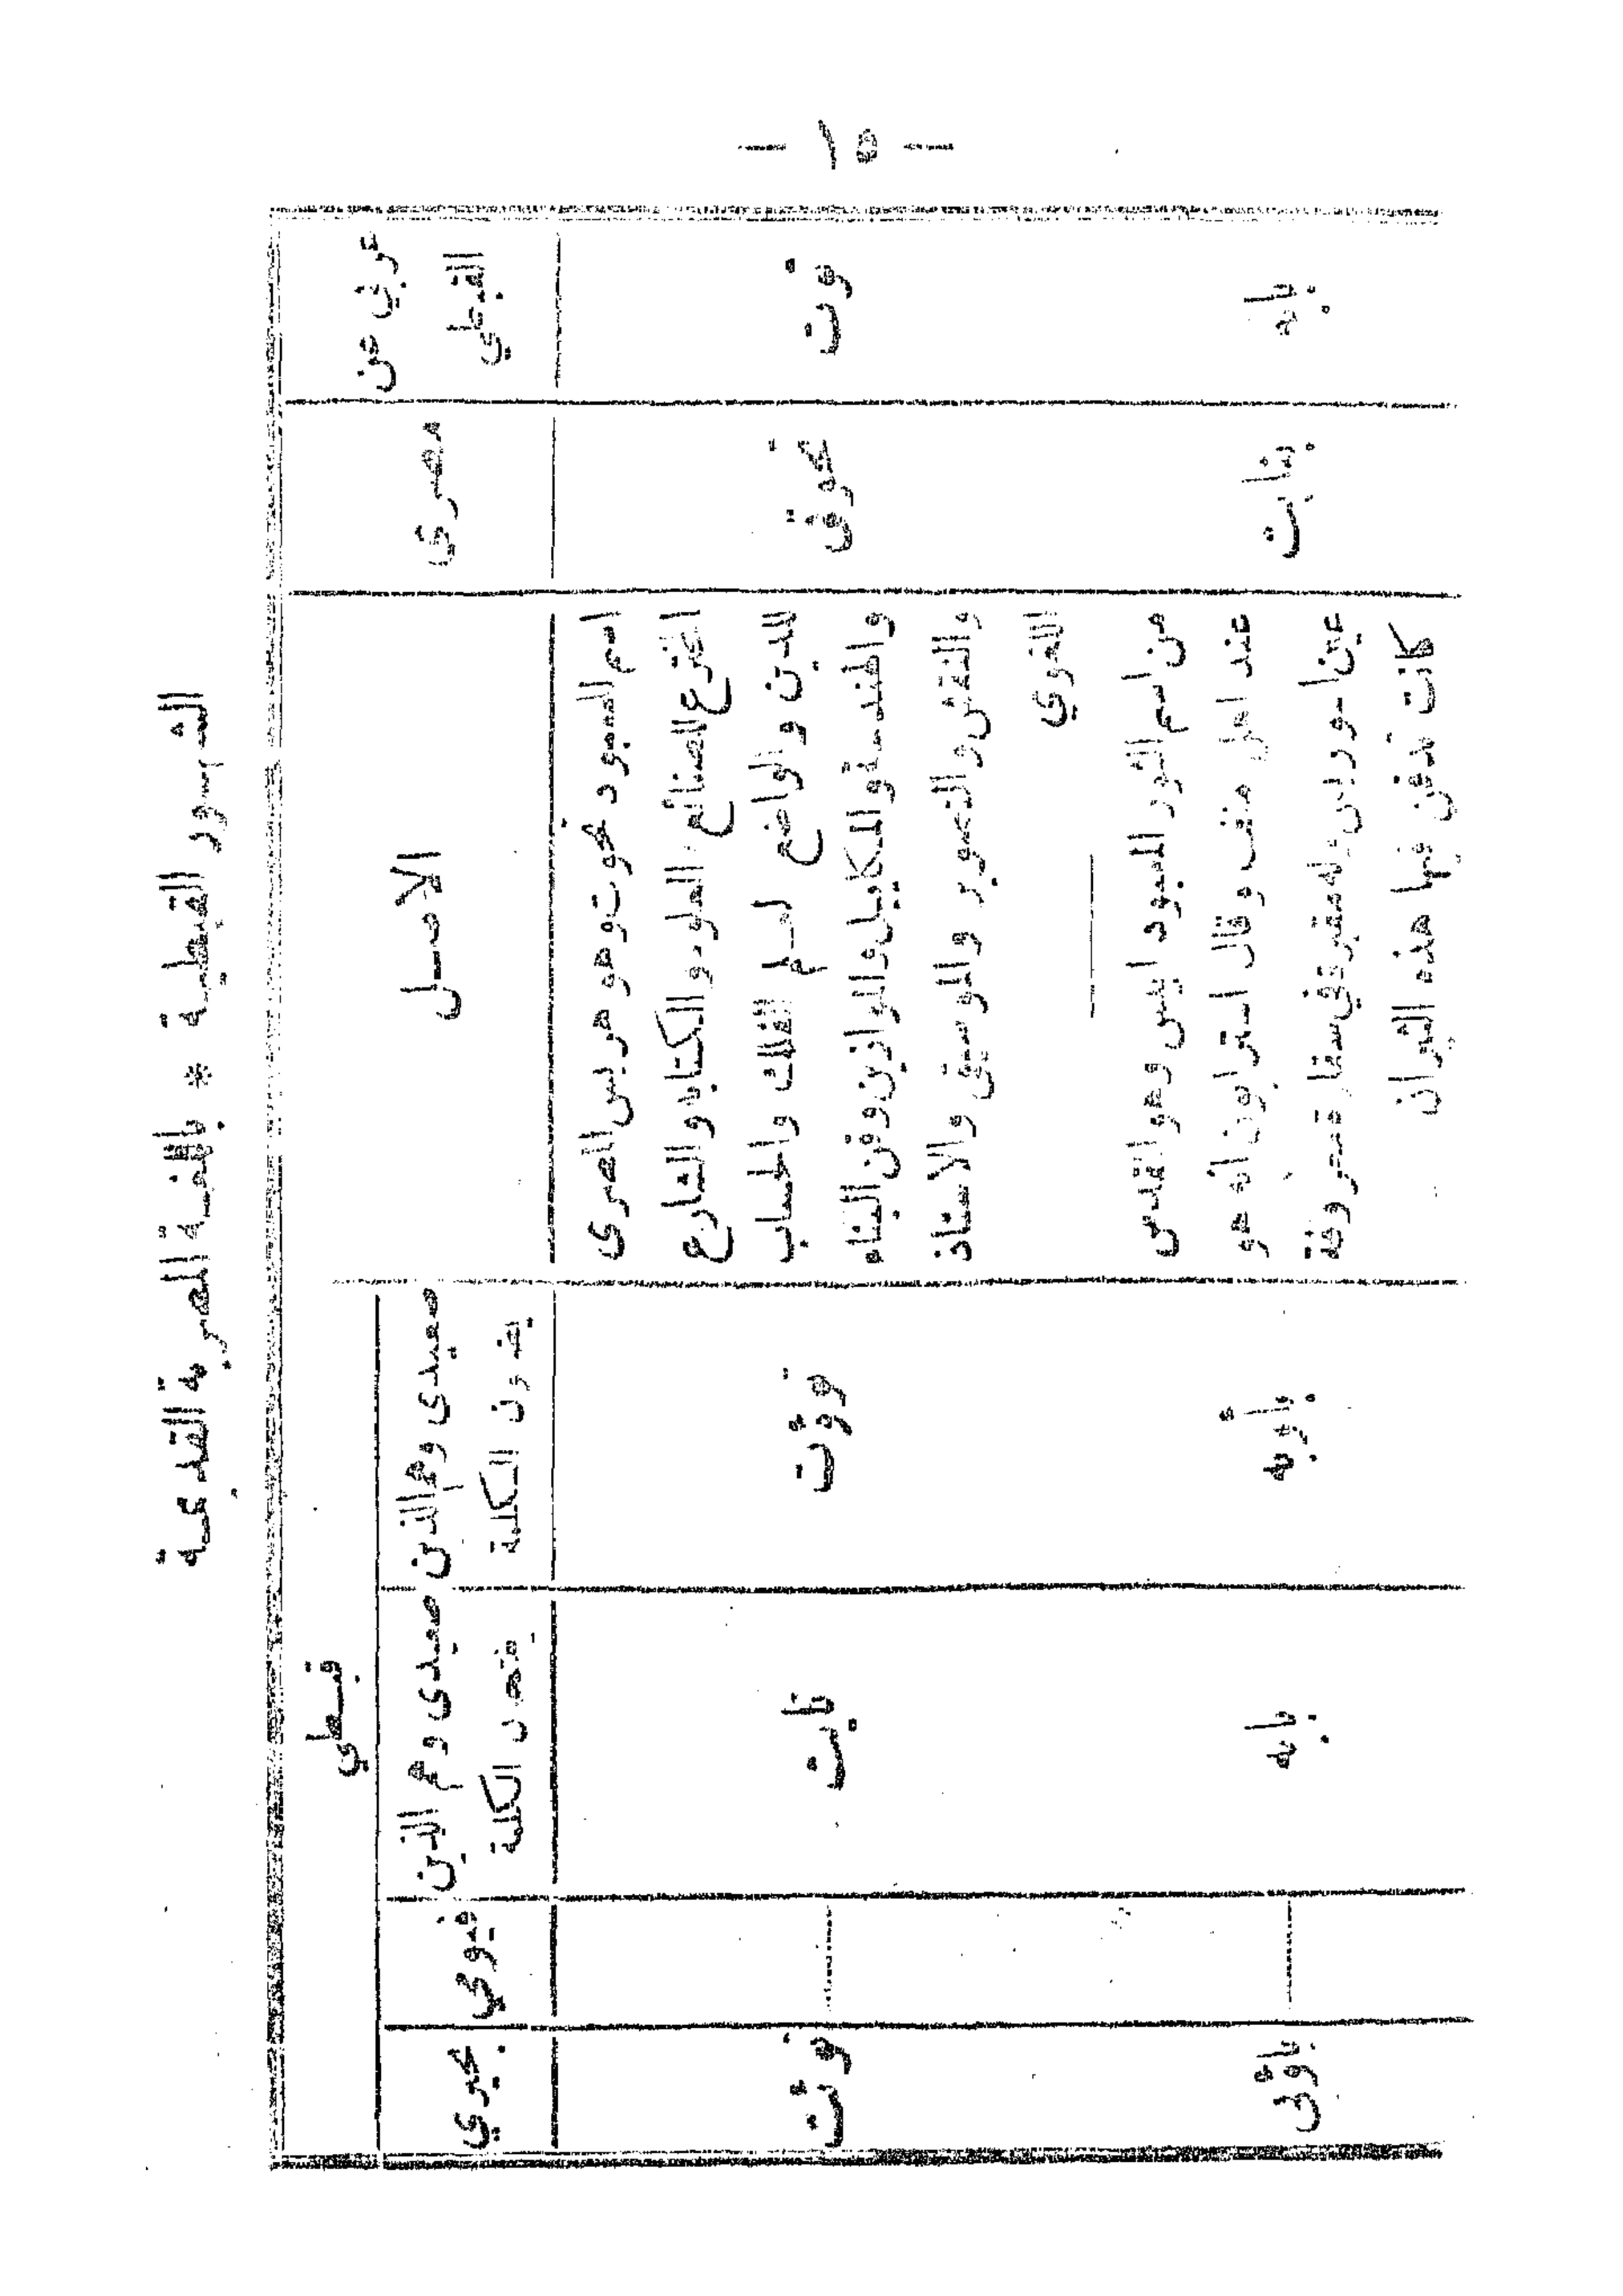 — ١٥ —
الشهور القبطية * باللغة المصرية القديمة
عربي عن
القبطي
مصرى
الاصل
قبطي
صعيدى وهم الذين
يضمون الكلمة
صعيدى وهم الذين
يفتحون الكلمة
فيومي
بحيري
توت
تحوتى
اسم المعبود تحوت وهو هرمس المصرى
المخترع للصنائع والعلوم والكتابه والشارع
للدين والواضع لعلم الفلك والحساب
والهندسة والمكاييل والموازين وفن البناء
والنقش والتصوير والموسيقى والاستاذ
اللغوي
توؤت
تابت
توئت
بابه
بنابت
من اسم الثور المعبود ابيس وهو المقدس
عند اهل منف وقال استرابون انه هو
عين اسوراس وله مقبرة في سقارة معروفة
كانت تدفن فيها هذه الثيران
بأوبه
بابه
باؤبى